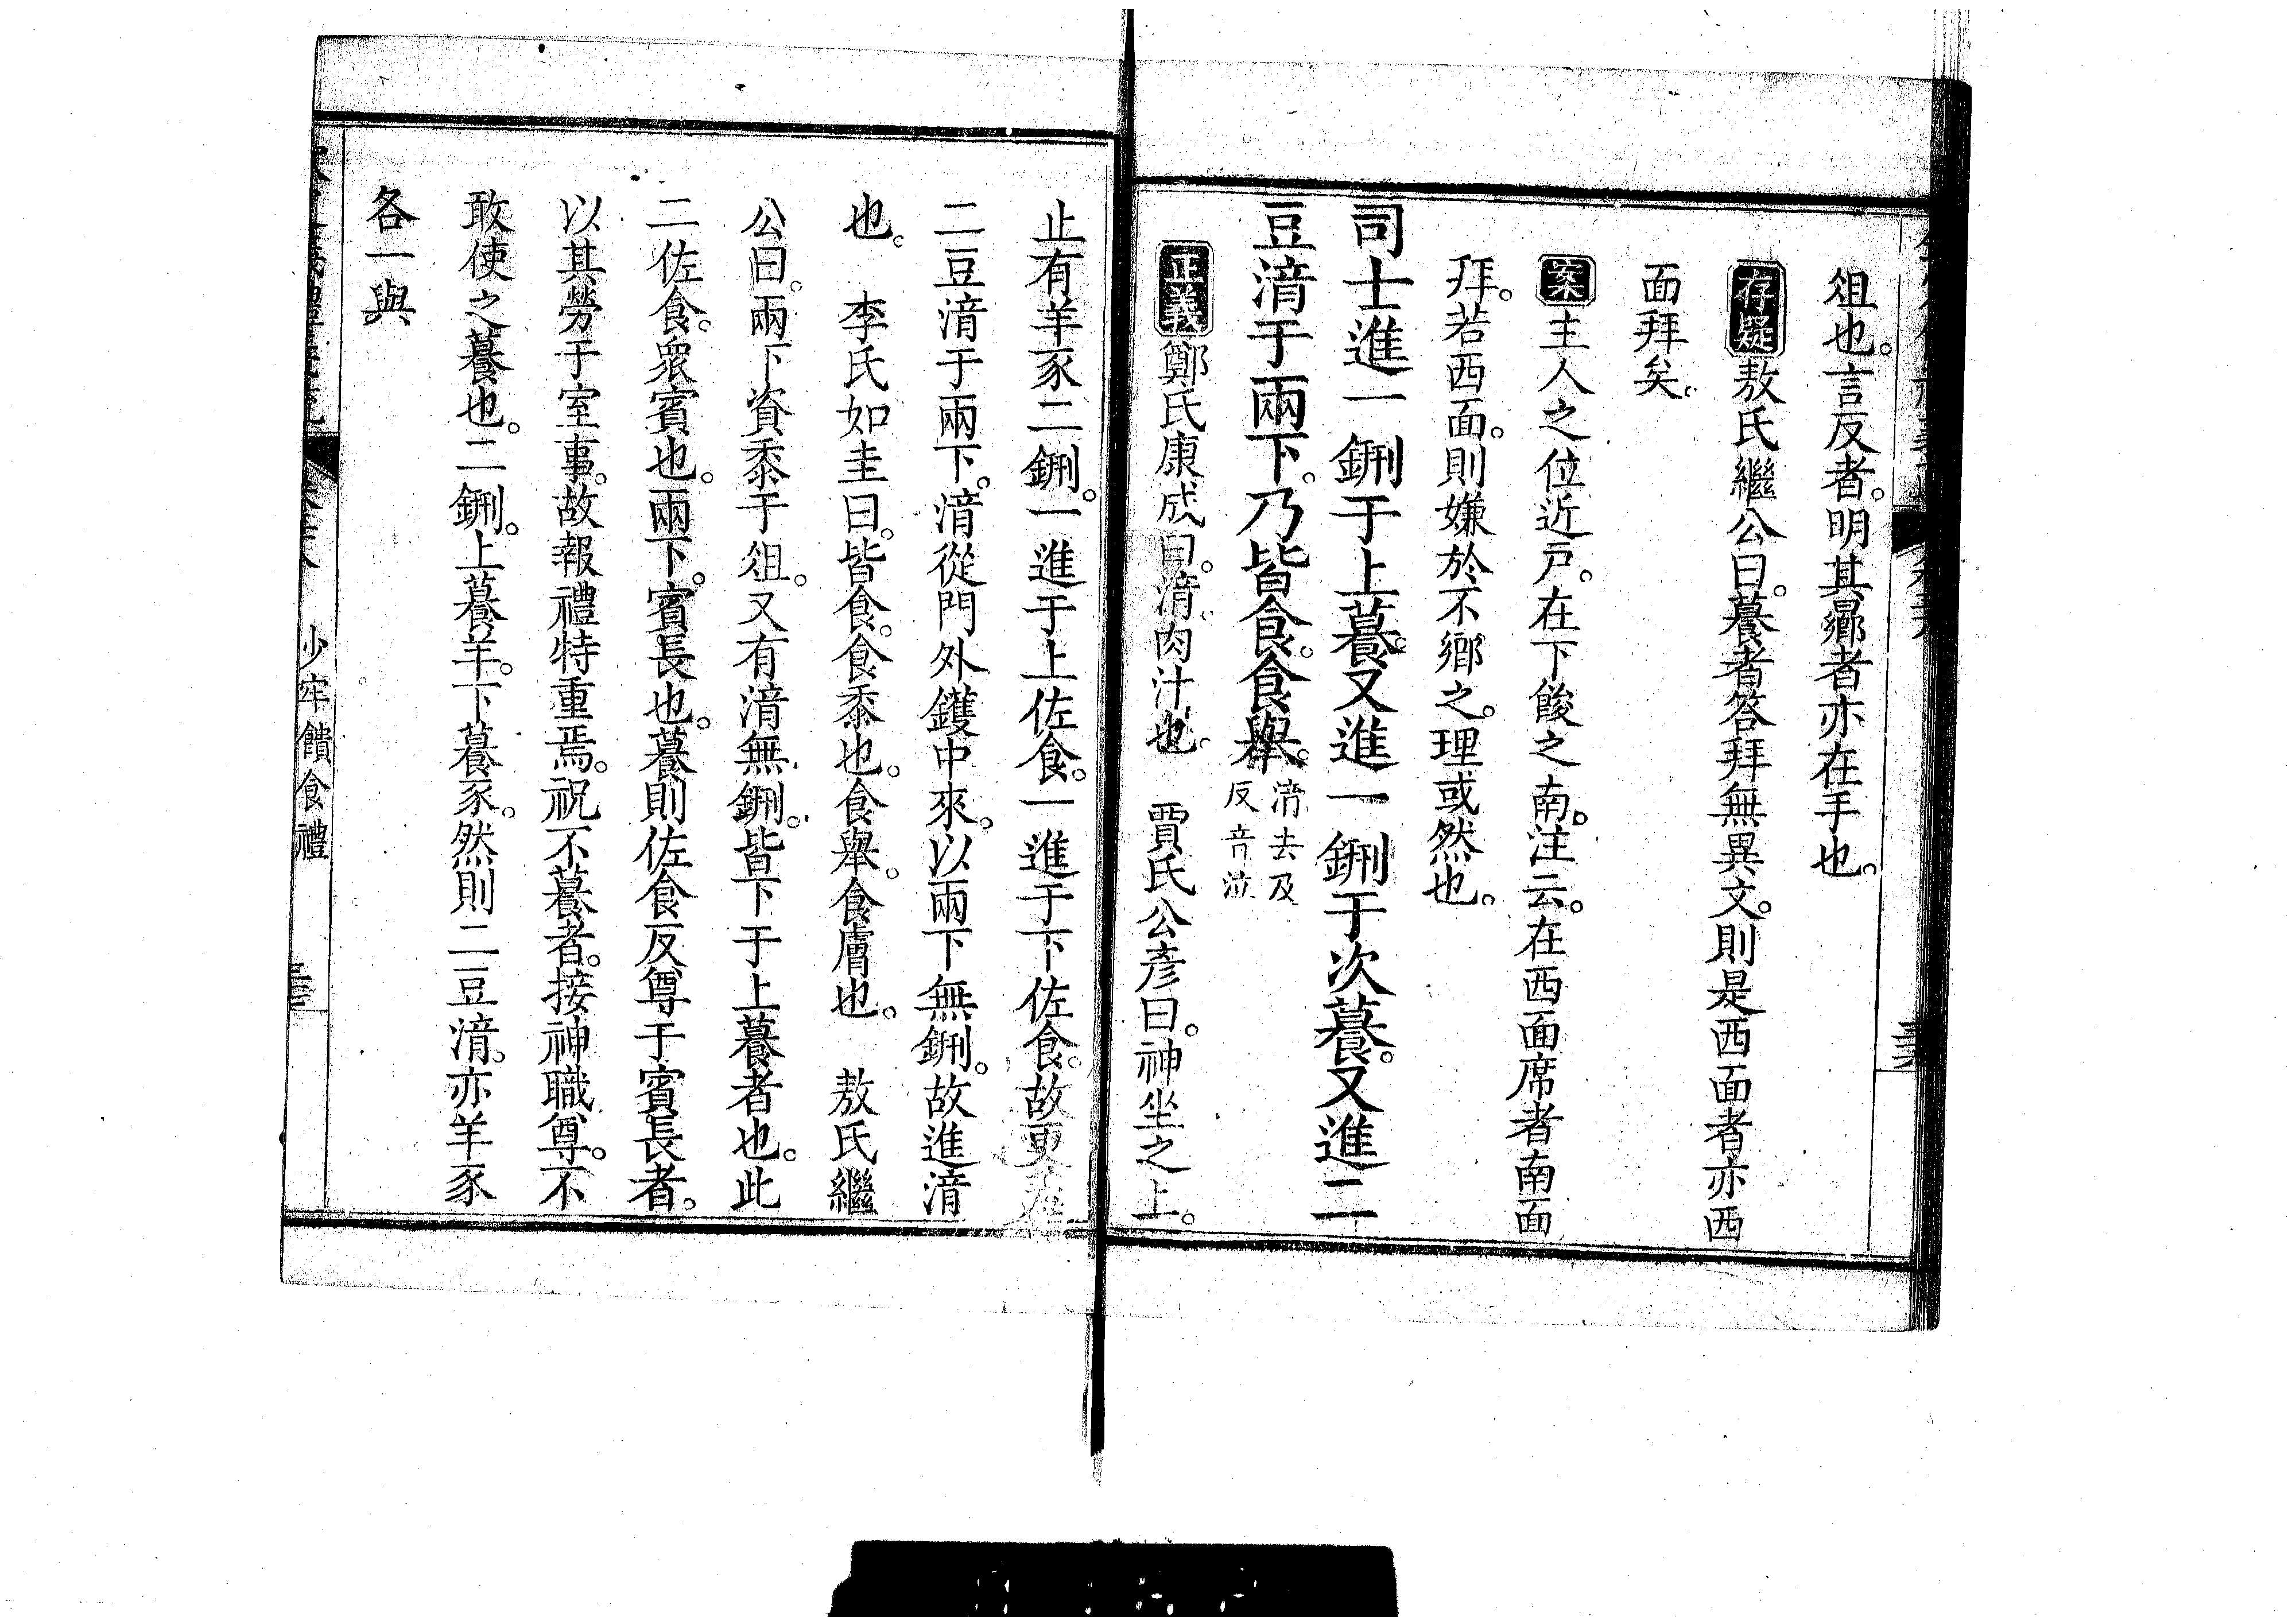 俎也。言反者。明其鄉者亦在手也。
存疑敖氏繼公曰。䬸者答拜無異文。則是西面者亦西
面拜矣。
案主人之位近戶。在下餕之南。注云。在西面席者南面
拜。若西面。則嫌於不鄉之。理或然也。
司士進一鉶于上䬸。又進一鉶于次䬸。又進二
豆湆于兩下。乃皆食。食舉。湆去及
反音泣
正義鄭氏康成曰。湆。肉汁也。 賈氏公彥曰。神坐之上。
止有羊豕二鉶。一進于上佐食。一進于下佐食。故更
二豆湆于兩下。湆從門外鑊中來。以兩下無鉶。故進湆
也。 李氏如圭曰。皆食。食黍也。食舉。食膚也。 敖氏繼
公曰。兩下資黍于俎。又有湆無鉶。皆下于上䬸者也。此
二佐食。眾賓也。兩下。賓長也。䬸則佐食反尊于賓長者。
以其勞于室事。故報禮特重焉。祝不䬸者。接神職尊。不
敢使之䬸也。二鉶。上䬸羊。下䬸豕。然則二豆湆。亦羊豕
各一與
少牢饋食禮